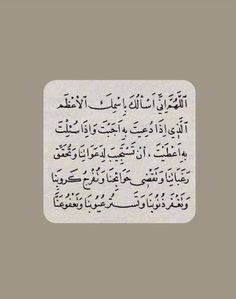 اَللّٰهُمَّ اِنِّي اَسْأَلُكَ بِاسْمِكَ الْأَعْظَمِ
الَّذِي إِذَا دُعِيتَ بِهِ أَجَبْتَ وَإِذَا سُئِلْتَ
بِهِ أَعْطَيْتَ ، أَنْ تَسْتَجِيبَ لِدَعَوَاتِنَا وَتُحَقِّقَ
رَغَبَاتِنَا وَتَقْضِيَ حَوَائِجَنَا وَتُفَرِّجَ كُرُوبَنَا
وَتَغْفِرَ ذُنُوبَنَا وَتَسْتُرَ عُيُوبَنَا وَتَعْفُوَ عَنَّا